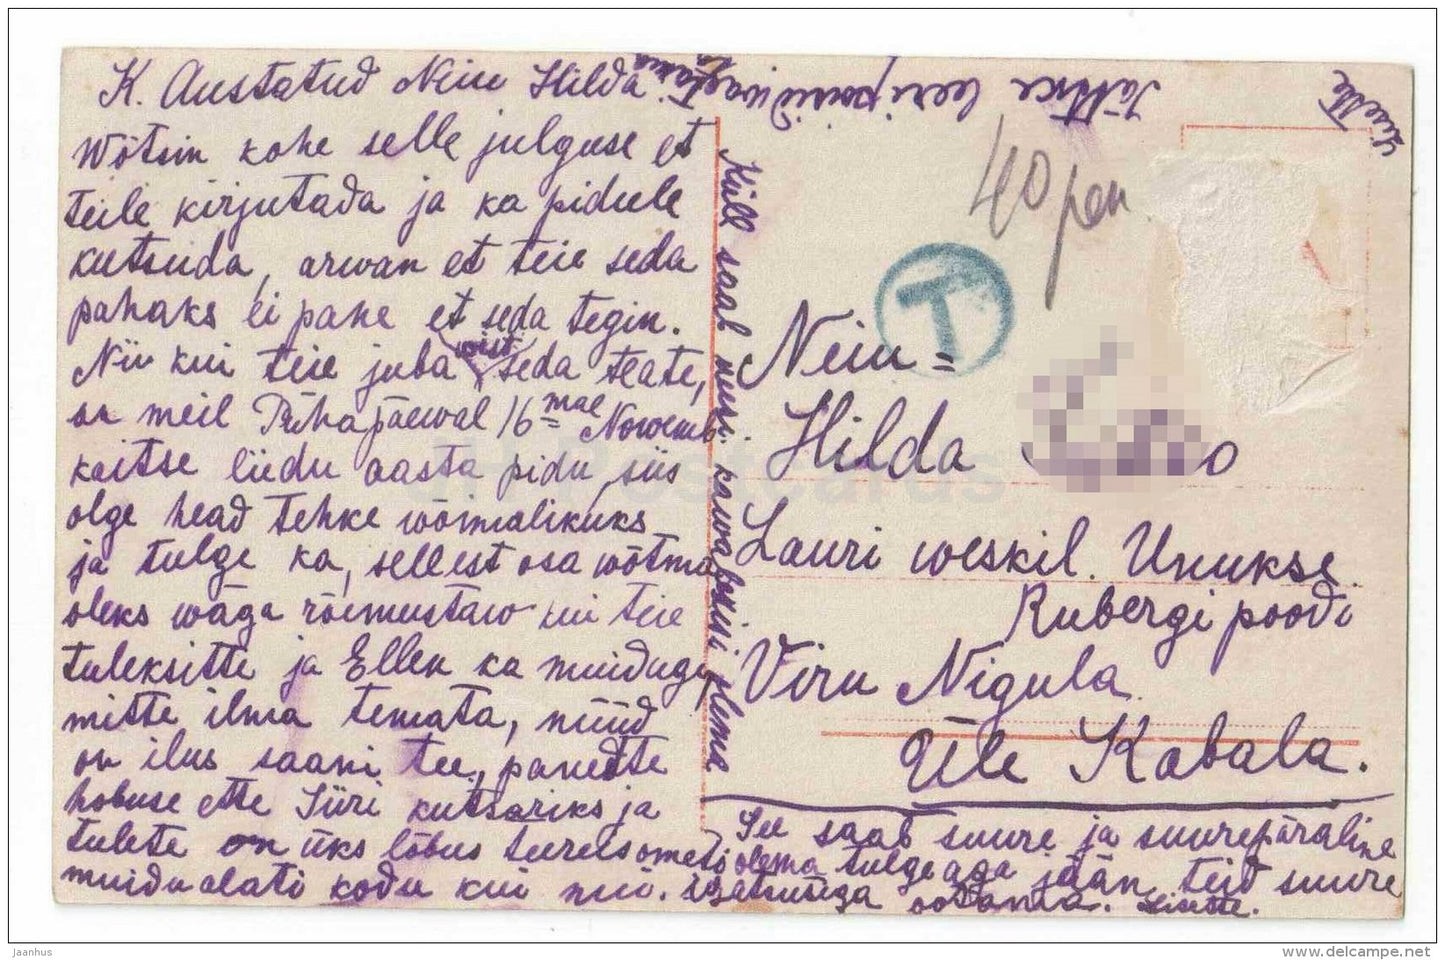 K. Austatud Neiu Hilda.
Wõtsin kohe selle julguse et
teile kirjutada ja ka pidule
kutsuda, arwan et teie seda
pahaks ei pane et seda tegin.
Nii kui teie juba wist seda teate,
on meil Pühapäewal 16mal Nowemb.
kaitse liidu aasta pidu, siis
olge head tehke wõimalikuks
ja tulge ka, sellest osa wõtma
oleks wäga rõemustaw kui teie
tuleksitte ja Ellen ka muidugi,
mitte ilma temata, nüüd
on ilus saani tee, panette
hobuse ette Jüri kutsariks ja
tulete on üks lõbus teereis ometi
muidu alati kodu kui nii.
Küll saab nüüd olema
See saab suure ja suurepäraline
olema tulge aga jään teid suure
igatsusega ootama. Lisette.
Lisette
40 pen
T
Neiu =
Hilda
Lauri weskil. Unukse.
Rubergi poodi
Viru Nigula
Üle Kabala.
Postcards
jaanhus
www.delcampe.net